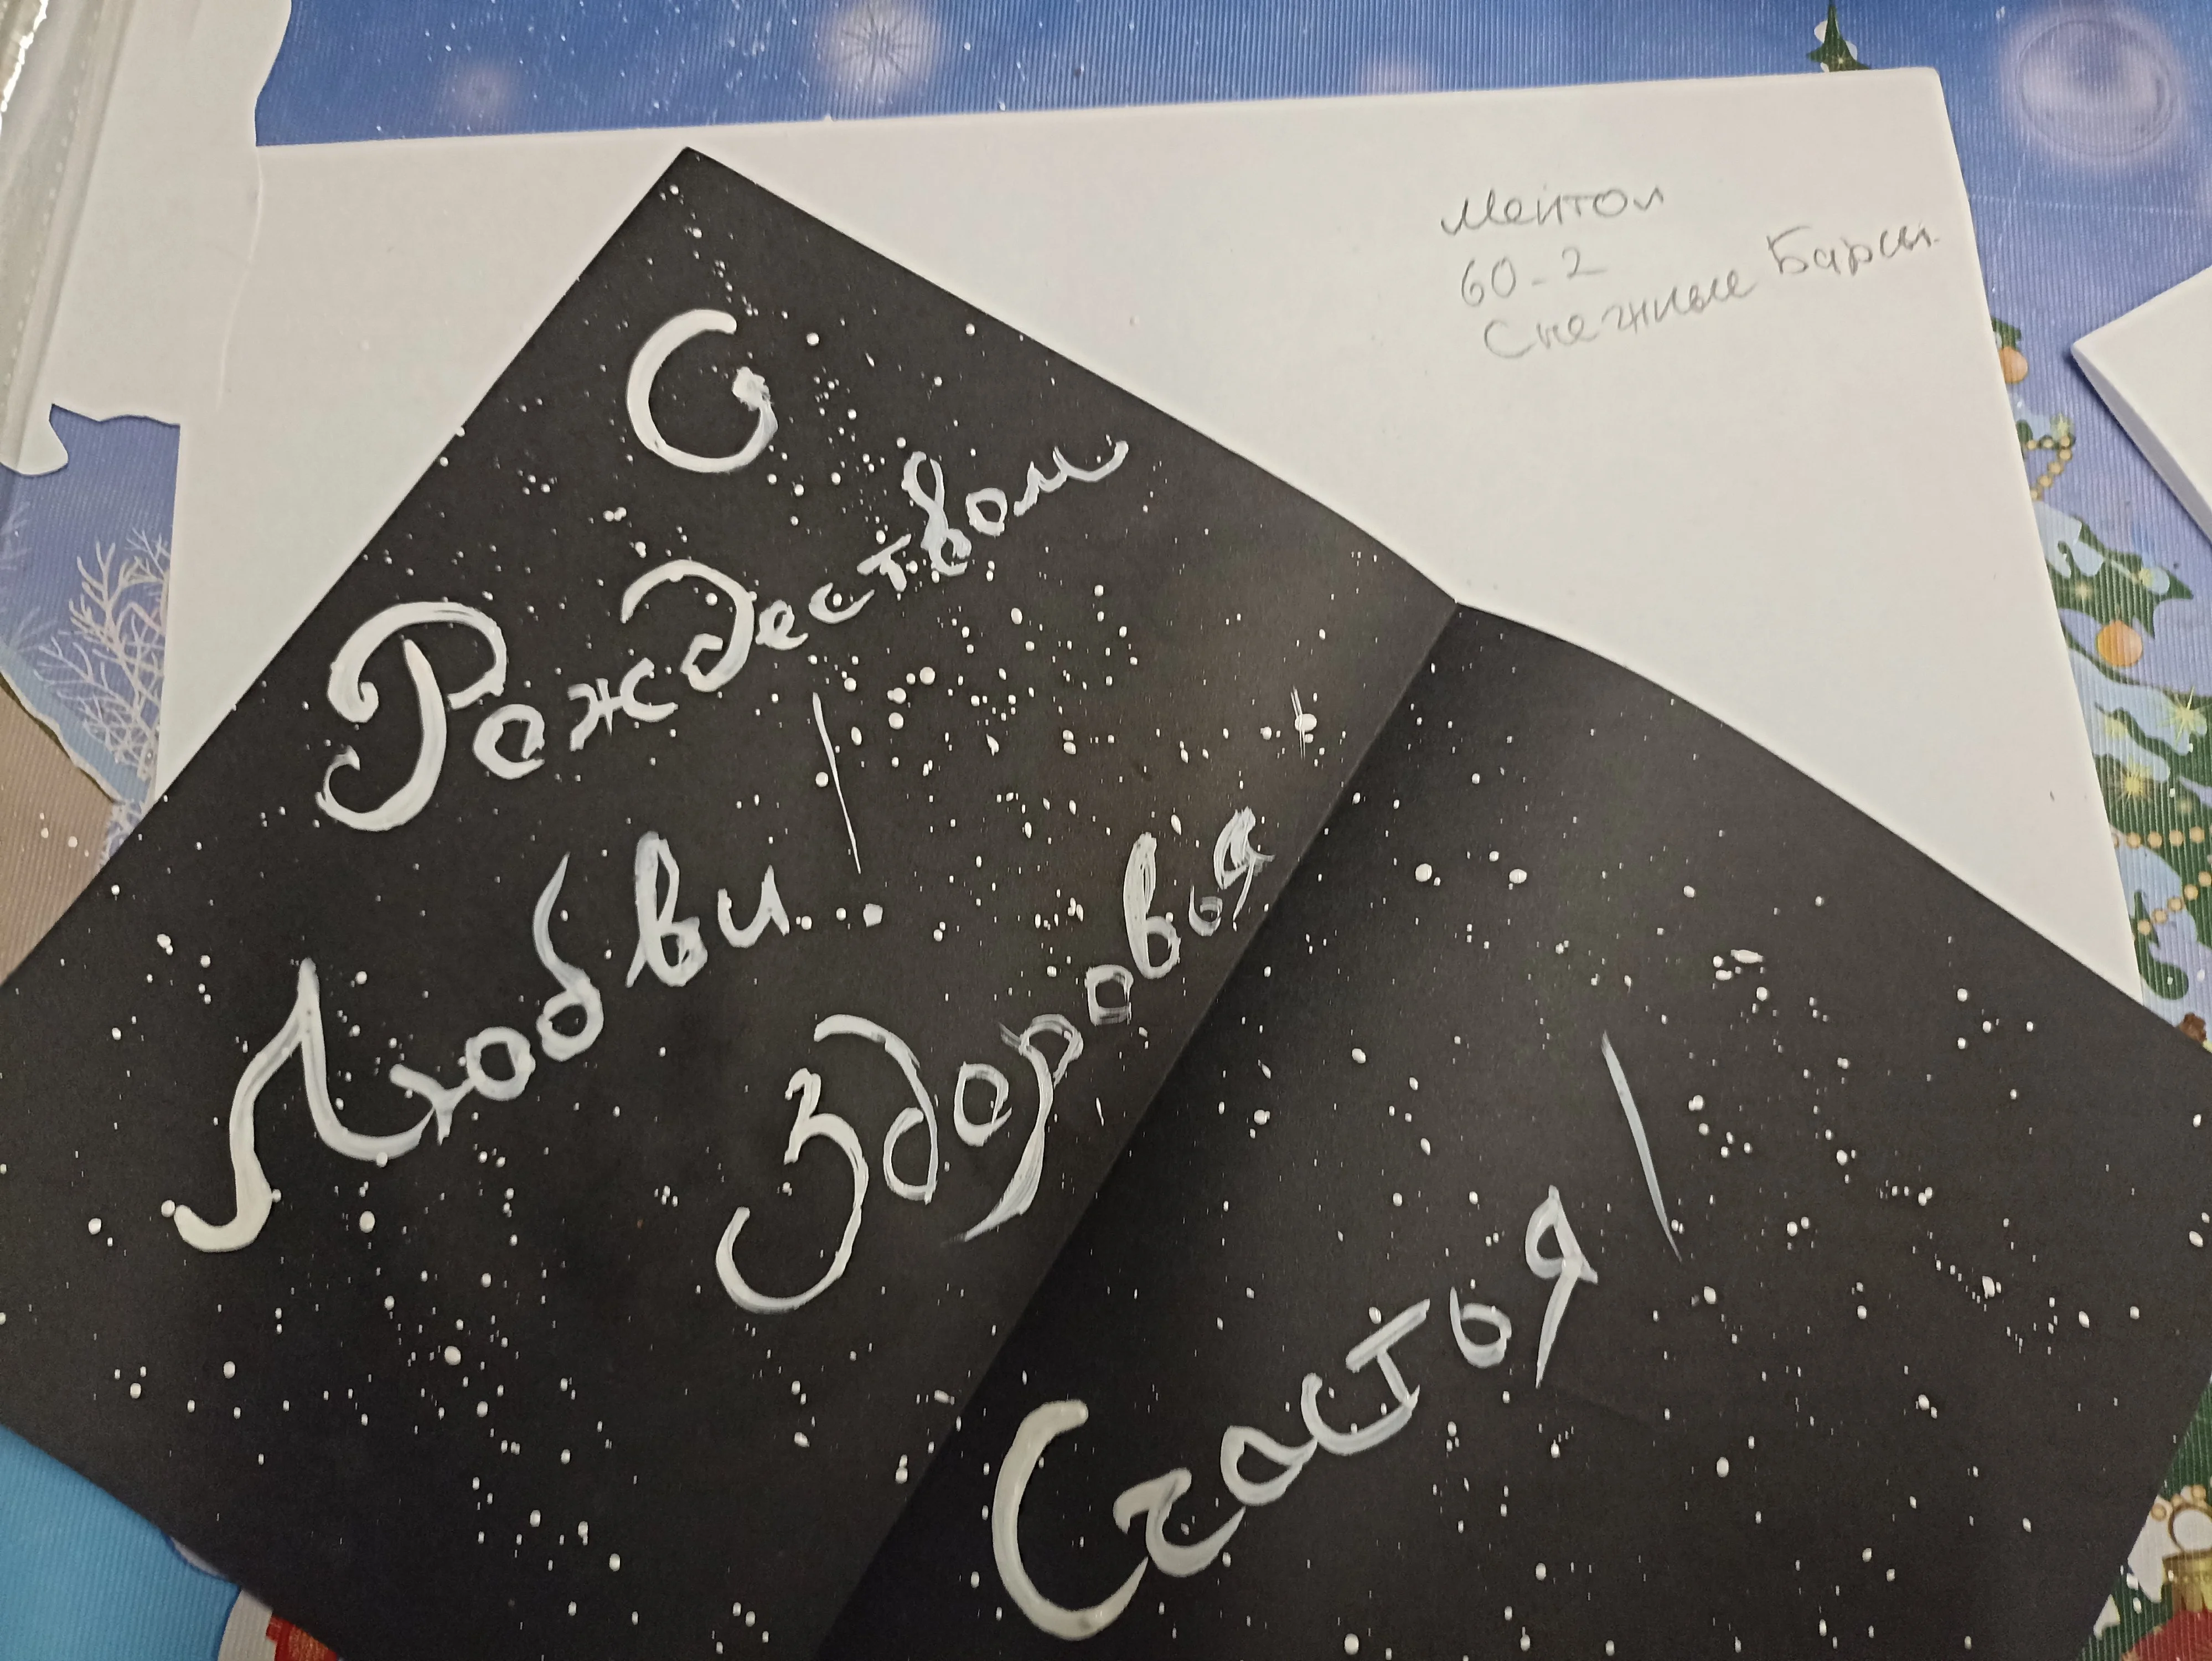 Ментол
60-2
Снежные Барсы
С
Рождеством!
Любви
Здоровья
Счастья!